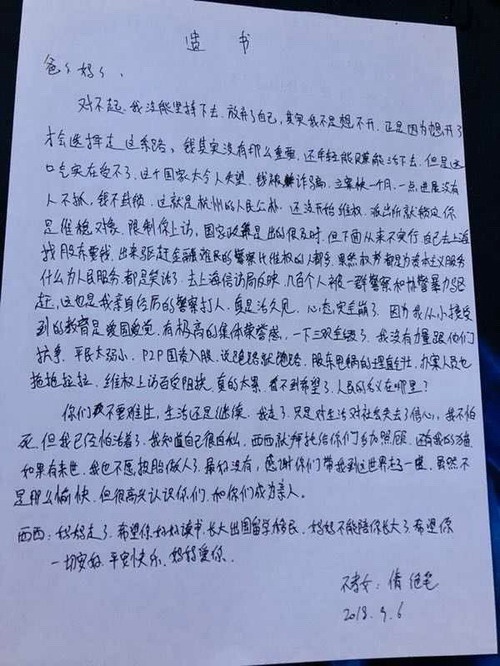 遗书
爸妈妈、
对不起，我没能坚持下去，放弃了自己，其实我不是想不开，正是因为想开了
才会选择走这条路，钱其实没有那么重要，还年轻能赚能活下去。但是这
口气实在受不了，这个国家太令人失望，钱被诈骗，立案快一个月，一点进展没有
人不抓，钱不截赃。这就是杭州的人民公仆。还没开始维权，派出所就锁定你
是维稳对象，限制你上访，国家政策是出的很及时，但下面从来不实行，自己去上海
找股东要钱，出来驱赶金融难民的警察比维权的人都多，果然权势都是为资本主义服务
什么为人民服务，都是笑话了。去上海信访局反映，几百个人被一群警察和协警暴力驱
赶，这也是我亲身经历的警察打人，真是活久见，心态完全崩了，因为我从小接受
到的教育是爱国爱党，有极高的集体荣誉感，一下三观尽毁了。我没有力量跟他们
抗衡，平民太弱小，P2P国资入股，说跑路就跑路，股东甩锅的理直气壮，办案人员也
拖拖拉拉，维权上访百受阻挠，真的太累，看不到希望了。人民的名义在哪里？
你们不要难过，生活还是继续。我走了，只是对生活对社会失去了信心，我不怕
死，但我已经怕活着了，我知道自己很自私，西西就拜托给你们多加照顾，还有我的
如果有来世，我也不愿投胎做人了，最好没有，感谢你们带我到这世界走一遭，虽然不
是那么愉快，但很高兴认识你们，和你们成为亲人。
西西：妈妈走了，希望你好好读书，长大出国留学移民，妈妈不能陪你长大了，希望你
一切安好，平安快乐，妈妈爱你。
不孝女：倩 绝笔
2018.9.6